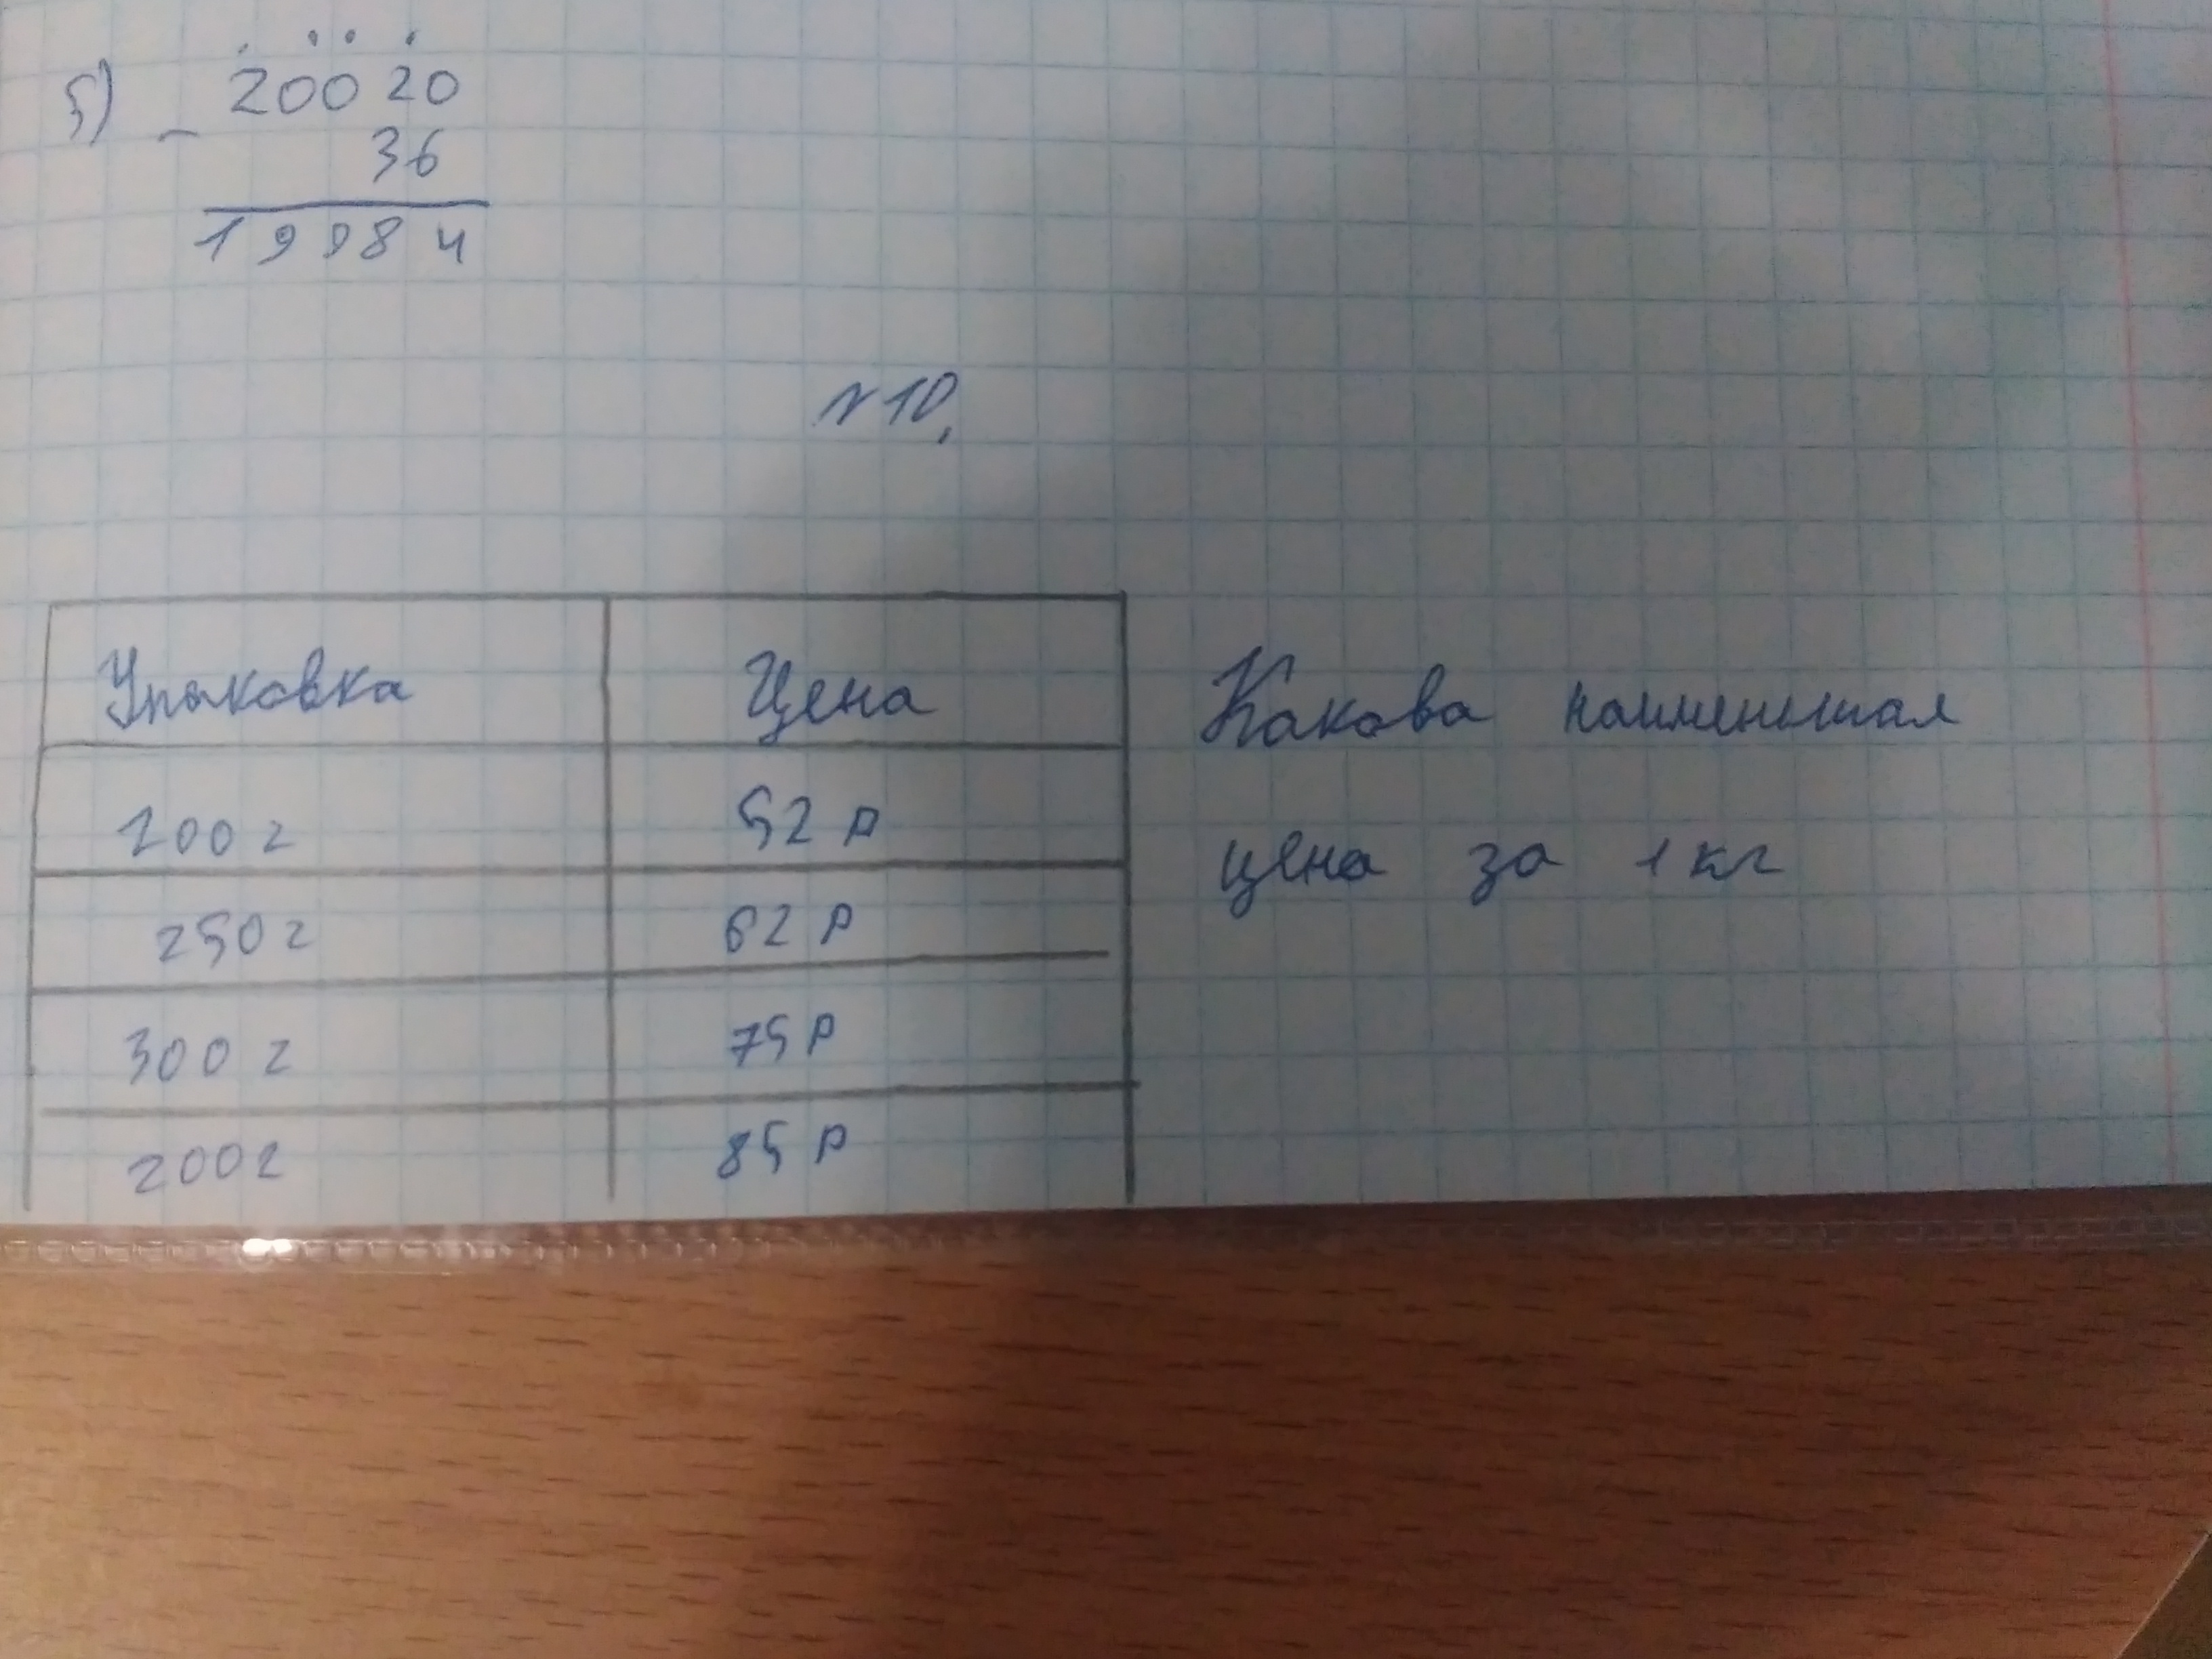 5) - 20020
36
19984
N10.
Упаковка Цена
200г 52 р
250г 62 р
300г 75 р
200г 85 р
Какова наименьшая
цена за 1 кг